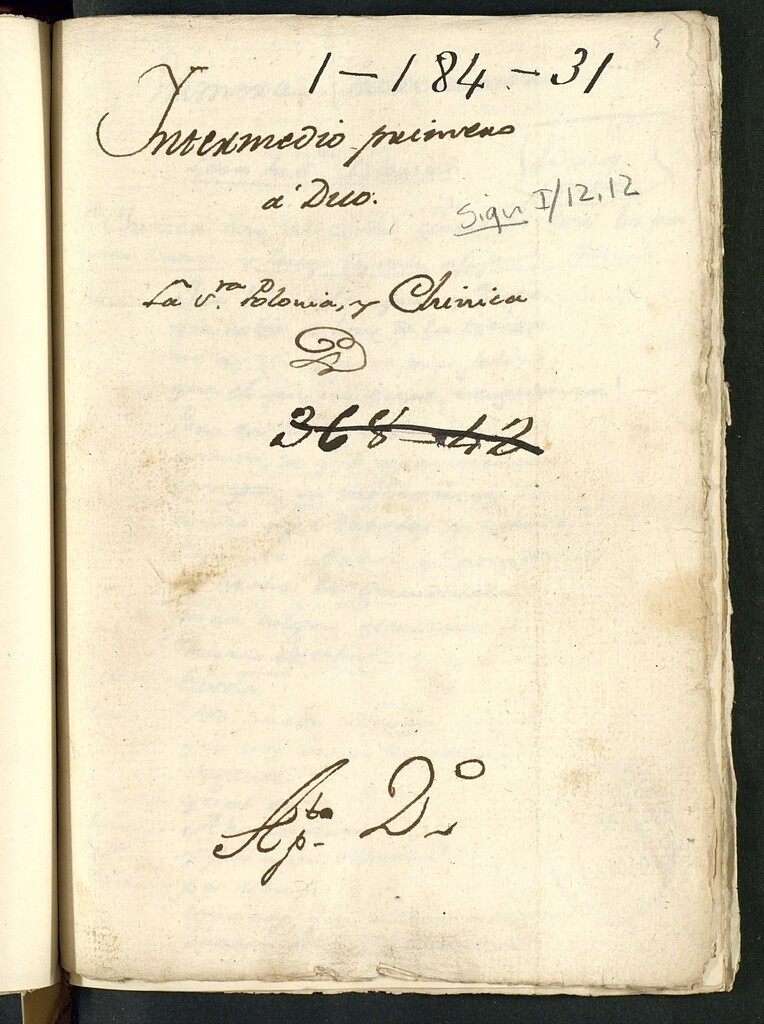 5
1-184-31
Intermedio primero
a' Duo.
Sign I/12,12
La S.ra Polonia, y Chinica
368-42
Ap.ta D.o